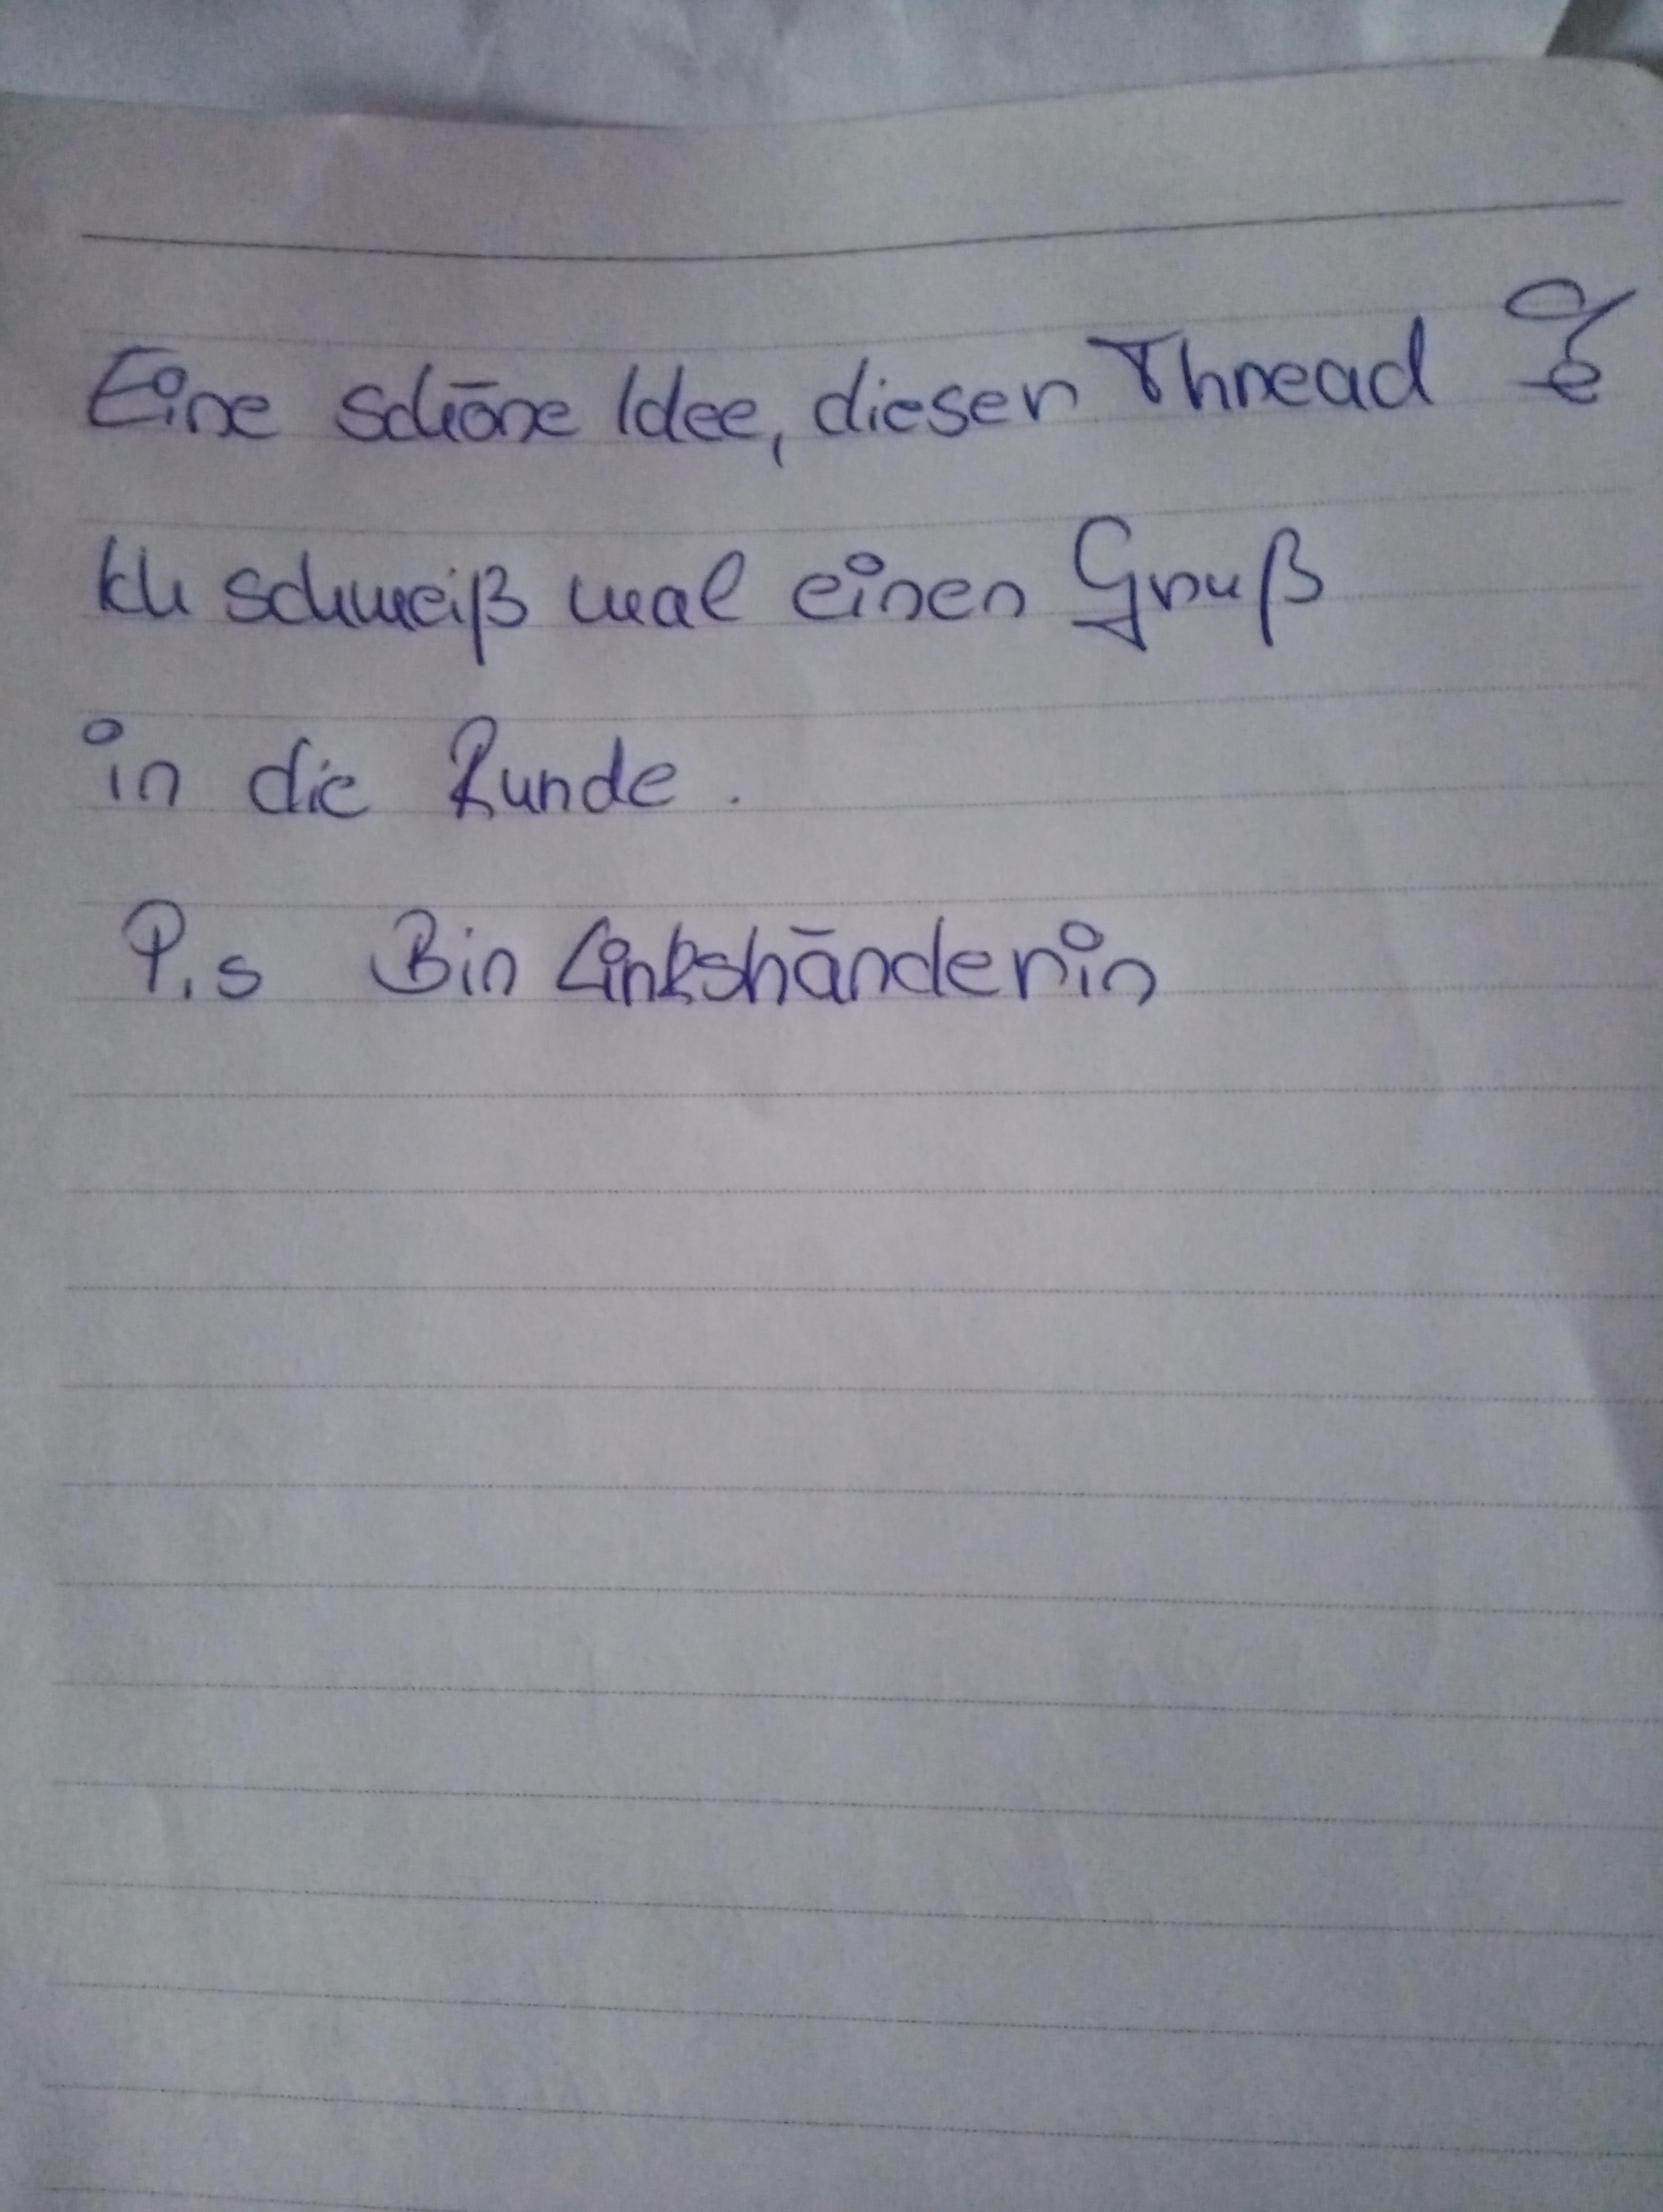 Eine schöne Idee, dieser Thread
Ich schmeiß mal einen Gruß
in die Runde.
P.s Bin Linkshänderin